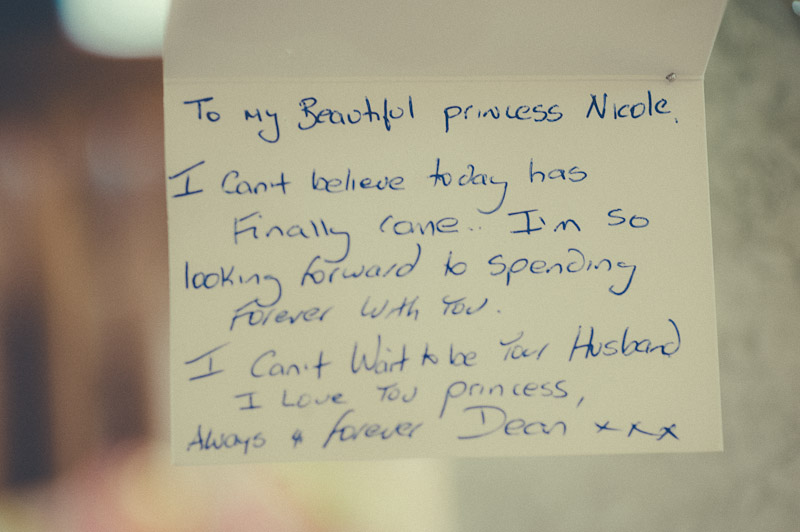 To My Beautiful princess Nicole.
I Can't believe today has
Finally came.. I'm so
looking forward to spending
forever With You.
I Can't Wait to be Your Husband
I Love You princess,
Always & forever Dean xxx